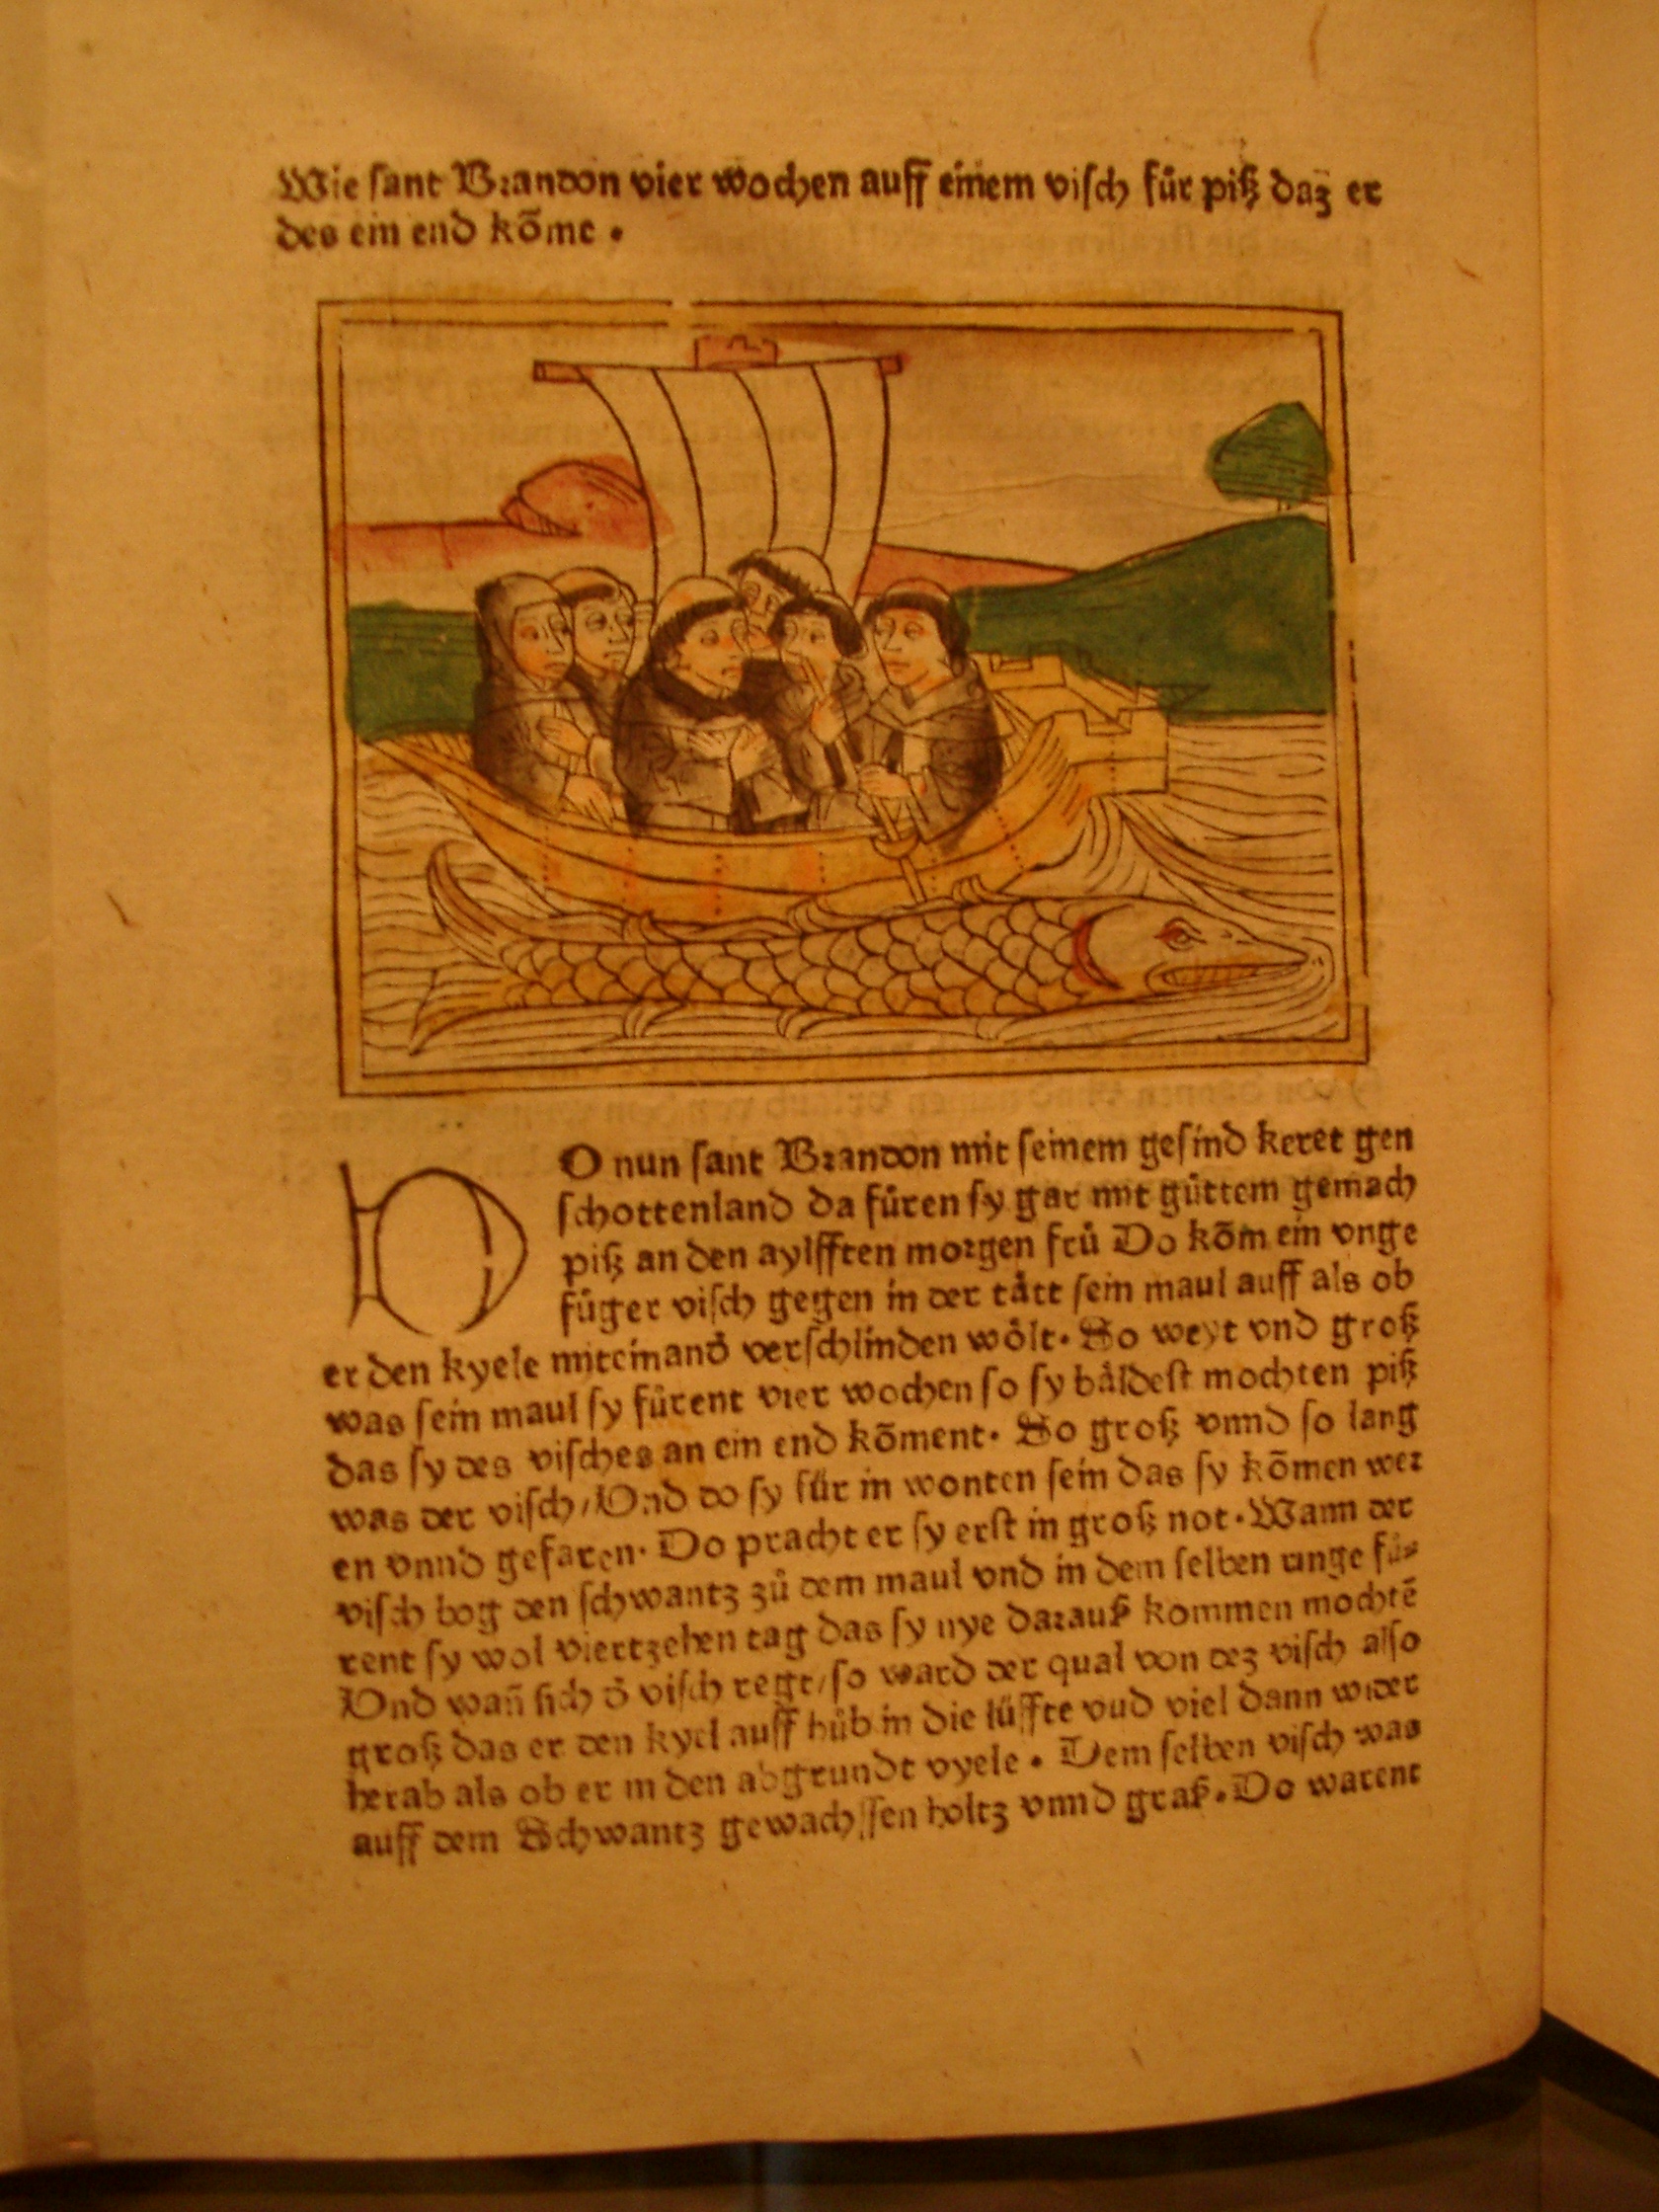 Wie ſant Brandon vier wochen auff einem viſch fůr piß daz er
des ein end kõme .
DO nun ſant Brandon mit ſeinem geſind keret gen
ſchottenland da fůren ſy gar mit gůttem gemach
piß an den aylfften morgen frů Do kõm ein vnge
fůger viſch gegen in der tått ſein maul auff als ob
er den kyele miteinand̄ verſchlinden wőlt. So weyt vnd groß
was ſein maul ſy fůrent vier wochen ſo ſy båldeſt mochten piß
das ſy des viſches an ein end kõment. So groß vnnd ſo lang
was der viſch / Vnd do ſy fůr in wonten ſein das ſy kõmen wer
en vnnd gefaren. Do pracht er ſy erſt in groß not. Wann der
viſch bog den ſchwantz zů dem maul vnd in dem ſelben vnge fů⸗
rent ſy wol viertzehen tag das ſy nye darauß kommen mochtẽ
Vnd wañ ſich d̄ viſch regt / ſo ward der qual von dez viſch alſo
groß das er den kyel auff hůb in die lůffte vnd viel dann wider
herab als ob er in den abgrundt vyele . Dem ſelben viſch was
auff dem Schwantz gewachſſen holtz vnnd graß. Do warent